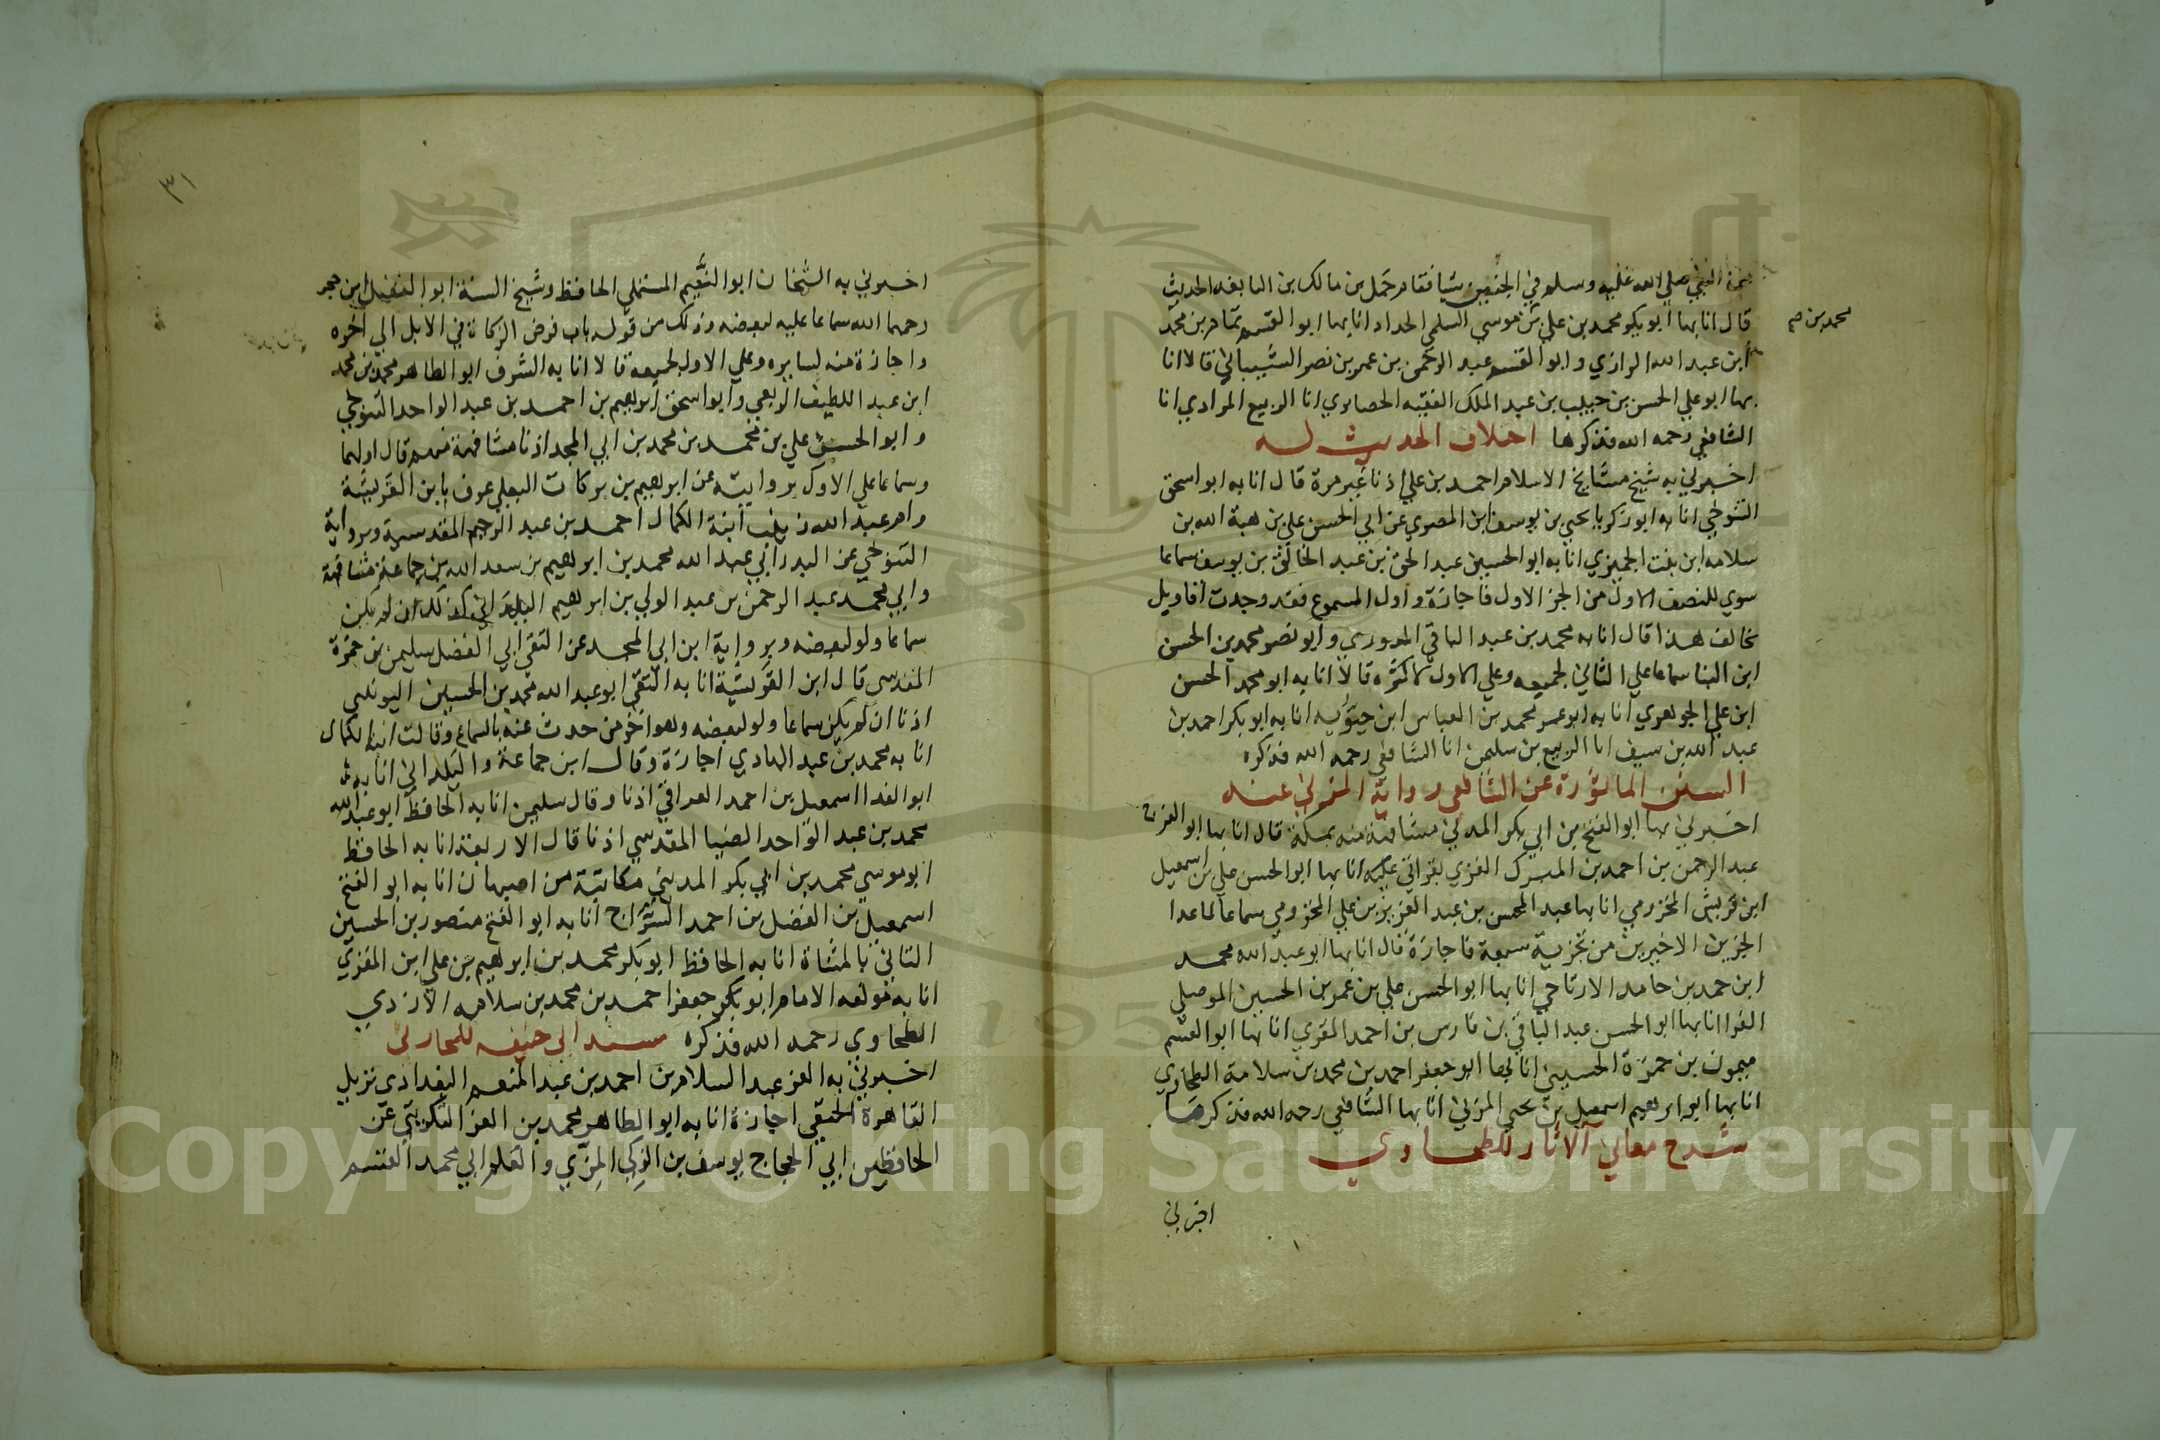 النبي صلى الله عليه وسلم في الجنين شيا فقام حمل بن مالك بن النابغه الحديث
قال انا بها ابو بكر محمد بن علي بن موسي السلمي الحداد انا بها ابو القسم تمام بن محمد
محمد بن صح
ابن عبد الله الرازي وابو القسم عبد الرحمن بن عمر بن نصر الشيباني قالا انا
بها ابو علي الحسن بن حبيب بن عبد الملك الفقيه الحصايري انا الربيع المرادي انا
الشافعي رحمه الله فذكرها احلاف الحديث له
اخبرني به شيخ مشايخ الاسلام احمد بن علي اذنا غير مرة قال انا به ابو اسحق
التنوخي انا به ابو زكريا يحيي بن يوسف ابن المصري عن ابي الحسن علي بن هبة الله بن
سلامه ابن بنت الجميزي انا به ابو الحسين عبد الحق بن عبد الخالق بن يوسف سماعا
سوي للنصف الاول من الجز الاول فاجازة واول المسموع فقد وجدت اقاويل
تخالف هذا قال انا به محمد بن عبد الباقي الدوري وابو نصر محمد بن الحسن
ابن البنا سماعا علي الثاني لجميعه وعلي الاول لاكثره قالا انا به ابو محمد الحسن
ابن علي الجوهري انا به ابو عمر محمد بن العباس ابن حيويه انا به ابو بكر احمد بن
عبد الله بن سيف انا الربيع بن سليمن انا الشافعي رحمه الله فذكره
السنن الماثورة عن الشافعي رواية المزني عنه
اخبرني بها ابو الفتح بن ابي بكر المدني مشافهة منه بمكة قال انا بها ابو الفرج
عبد الرحمن بن احمد بن المبرك الغزي بقراتي عليه انا بها ابو الحسن علي بن اسمعيل
ابن قريش المخزومي انا بها عبد المحسن بن عبد العزيز بن علي المخزومي سماعا لما عدا
الجزين الاخيرين من تجزية سبعة فاجازة قال انا بها ابو عبد الله محمد
ابن حمد بن حامد الارتاحي انا بها ابو الحسن علي بن عمر بن الحسين الموصلي
الفرا انا بها ابو الحسن عبد الباقي بن فارس بن احمد المقري انا بها ابو القسم
ميمون بن حمزة الحسيني انا بها ابو جعفر احمد بن محمد بن سلامة الطحاوي
انا بها ابو ابرهيم اسمعيل بن يحيي المزني انا بها الشافعي رحمه الله فذكرها
شرح معاني الآثار للطحاوي
اخبرني
٣١
اخبرني به الشيخان ابو النعيم المستملي الحافظ وشيخ السنة ابو الفضل ابن حجر
رحمهما الله سماعا عليه لبعضه وذلك من قوله باب فرض الزكاة في الابل الي اخره
واجازة منه لسايره وعلي الاول لجميعه قالا انا به الشرف ابو الطاهر محمد بن محمد
ابن عبد اللطيف الربعي وابو اسحق ابرهيم بن احمد بن عبد الواحد التنوخي
وابو الحسن علي بن محمد بن محمد بن ابي المجد اذنا مشافهة منهم قال اولهما
وسماعا علي الاول بروايته عن ابرهيم بن بركات البعلي عرف بابن القريشة
وام عبد الله زينب ابنة الكمال احمد بن عبد الرحيم المقدسية وبرواية
التنوخي عن البدر ابي عبد الله محمد بن ابرهيم بن سعد الله بن جماعة مشافهة
وابي محمد عبد الرحمن بن عبد الولي بن ابرهيم اليلداني كذلك ان لم يكن
سماعا ولو لبعضه وبرواية ابن ابي المجد عن التقي ابي الفضل سليمن بن حمزة
المقدسي قال ابن القريشة انا به التقي ابو عبد الله محمد بن الحسين اليونيني
اذنا ان لم يكن سماعا ولو لبعضه وهو اخر من حدث عنه بالسماع وقالت ابنة الكمال
انا به محمد بن عبد الهادي اجازة وقال ابن جماعة واليلداني انا به
ابو الفدا اسمعيل بن احمد العراقي اذنا وقال سليمن انا به الحافظ ابو عبد الله
محمد بن عبد الواحد الضيا المقدسي اذنا قال الاربعة انا به الحافظ
ابو موسي محمد بن ابي بكر المديني مكاتبة من اصبهان انا به ابو الفتح
اسمعيل بن الفضل بن احمد السراج انا به ابو الفتح منصور بن الحسين
التاني بالمثناة انا به الحافظ ابو بكر محمد بن ابرهيم بن علي ابن المقري
انا به مولفه الامام ابو بكر جعفر احمد بن محمد بن سلامه الازدي
الطحاوي رحمه الله فذكره مسند ابي حنيفه للحارثي
اخبرني به العز عبد السلام بن احمد بن عبد المنعم البغدادي نزيل
القاهرة الحنفي اجازة انا به ابو الطاهر محمد بن العز التكريتي عن
الحافظين ابي الحجاج يوسف بن الزكي المزي والعلم ابي محمد القسم
Copyright © King Saud University
195